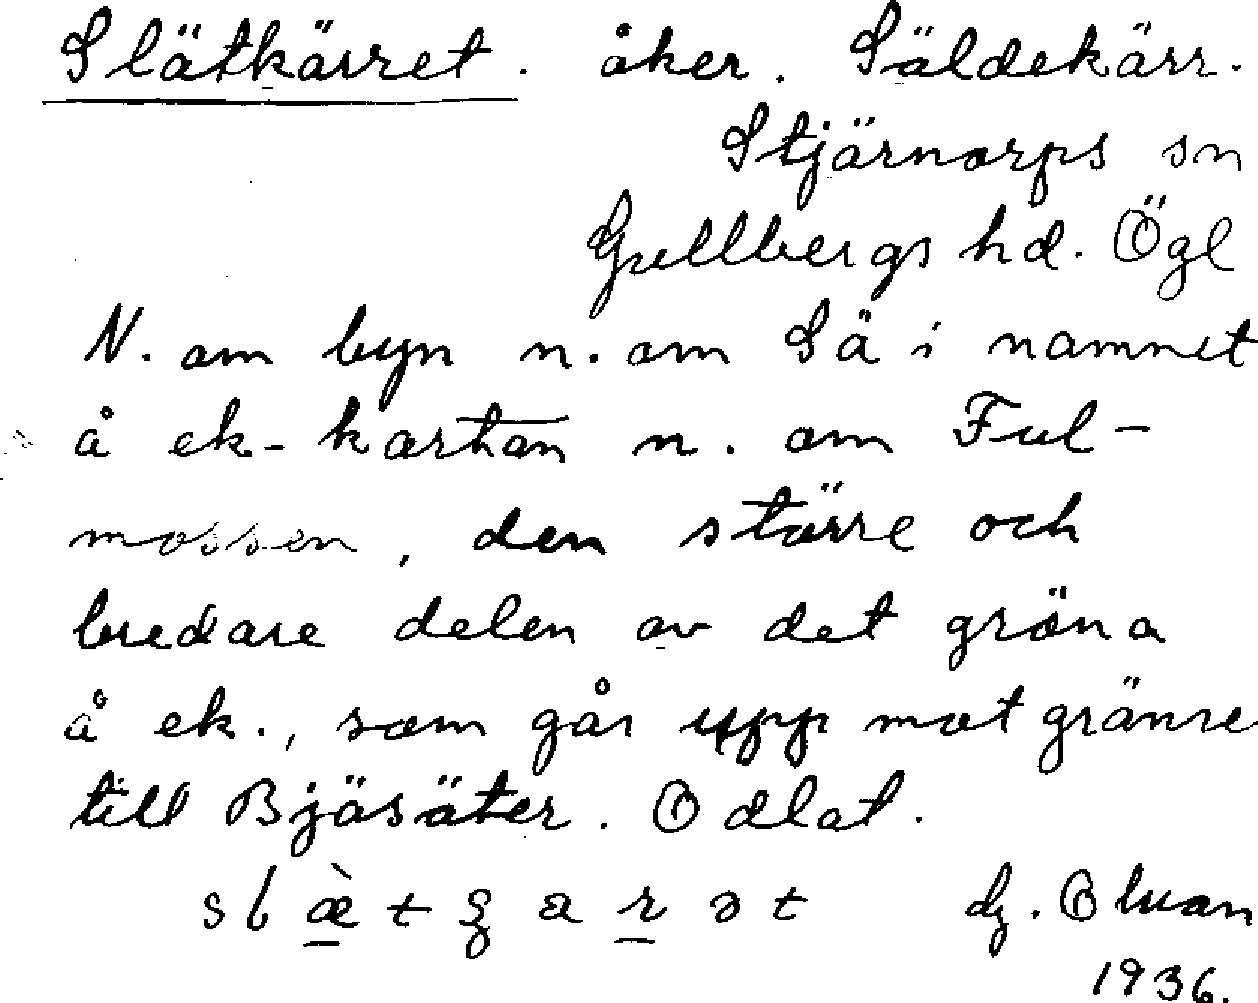 Slätkärret. åker. Säldekärr.
Stjärnorps sn
Gullbergs hd. Ögl
N. om byn n. om Sä i namnet
å ek-kartan n. om Ful-
mossen, den större och
bredare delen av det gröna
å ek., som går upp mot gränse
till Bjäsäter. Odlat.
1936.